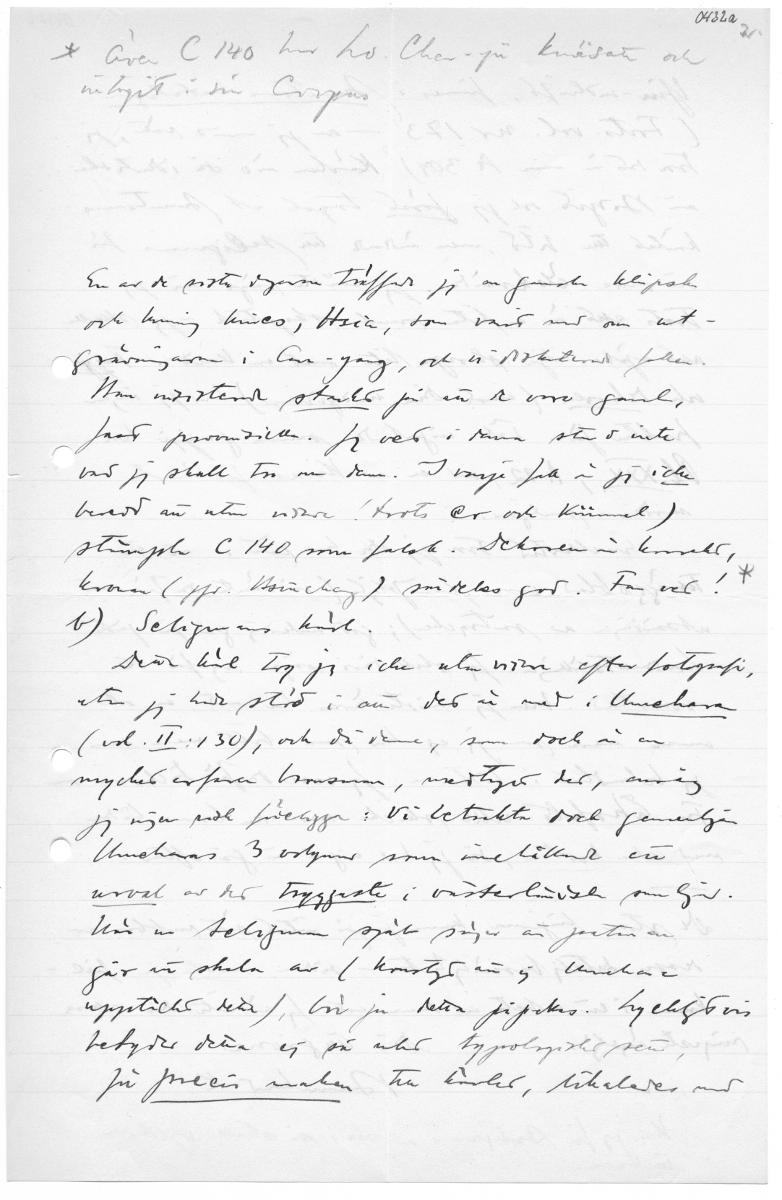 0432a
* Även C 140 har Lo Chen-yü knäsatt och
intagit i sin Corpus
En av de sista dagarna träffade jag en ganska klipsk
och kunnig kines, Hsia, som varit med om ut-
grävningarna i An-yang, och vi diskuterade saken.
Han insisterade starkt på att de voro gamla,
fast provinsiella. Jag vet i denna stund inte
vad jag skall tro om dem. I varje fall är jag icke
beredd att utan vidare (trots er och Kümmel)
stämpla C 140 som falsk. Dekoren är korrekt,
kronan (jfr. ) särdeles god. Fan vet! *
b) Seligmans kärl.
Detta kärl tog jag icke utan vidare efter fotografi,
utan jag hade stöd i att det är med i Umehara
(vol. II: 130), och då denne, som dock är en
mycket erfaren bronsman, medtagit det, ansåg
jag ingen risk föreligga: Vi betrakta dock gemenligen
Umeharas 3 volymer som innehållande ett
urval av det tryggaste i västerländska samlingar.
När nu Seligman själv säger att patinan
går att skala av (konstigt att ej Umehara
upptäckt detta), bör ju detta påpekas. Lyckligtvis
betyder detta ej så mket typologiskt sett,
ty precis maken till kärlet, likaledes med